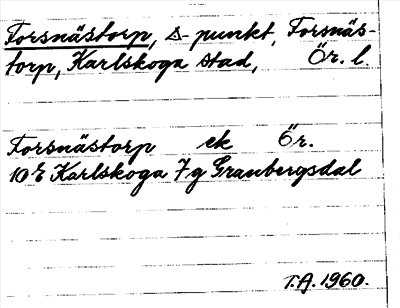 Torsnästorp, △-punkt, Torsnäs-
torp, Karlskoga stad, Ör. l.
Torsnästorp ek Ör.
10E Karlskoga 7g Granbergsdal
T.A. 1960.